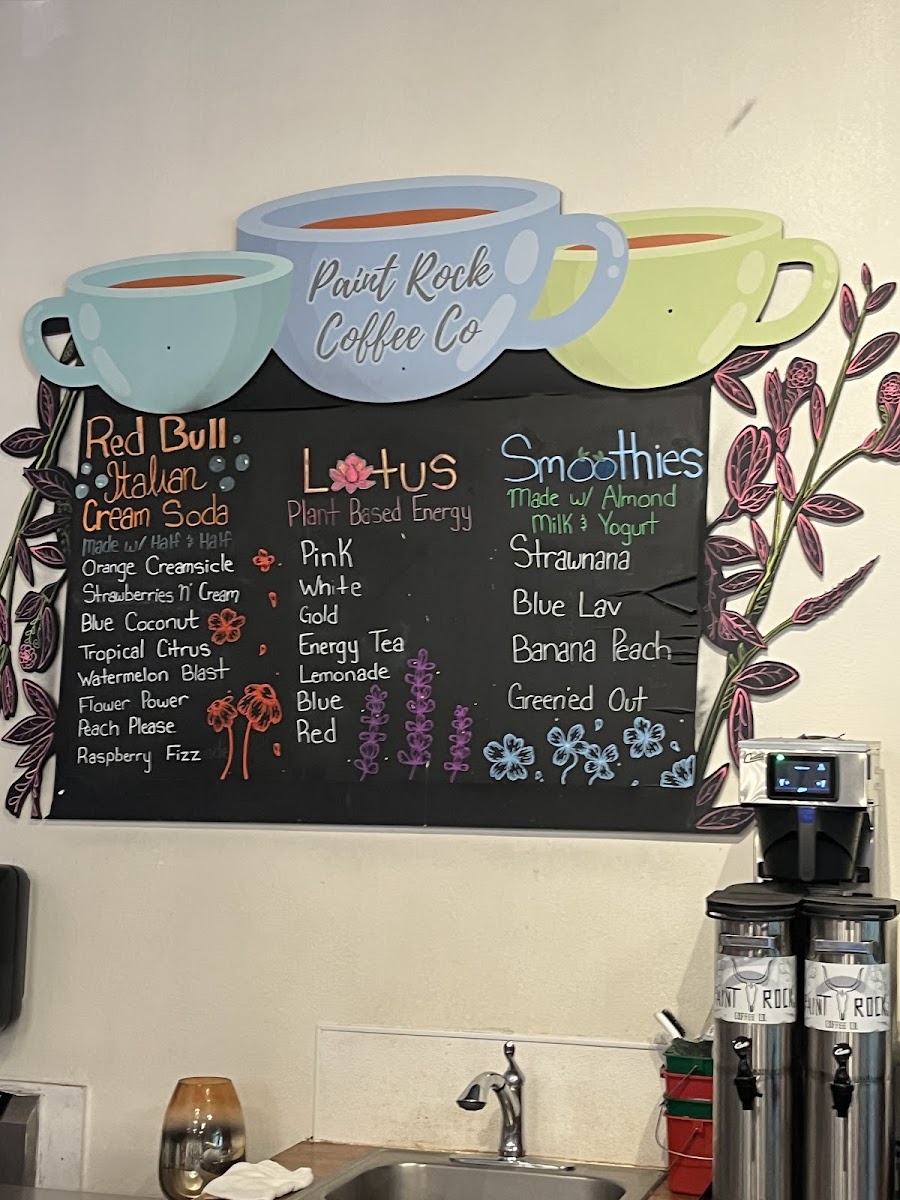 Paint Rock
Coffee Co
Red Bull
Italian
Cream Soda
Made w/ Half & Half
Orange Creamsicle
Strawberries 'N' Cream
Blue Coconut
Tropical Citrus
Watermelon Blast
Flower Power
Peach Please
Raspberry Fizz
Lotus
Plant Based Energy
Pink
White
Gold
Energy Tea
Lemonade
Blue
Red
Smoothies
Made w/ Almond
Milk & Yogurt
Strawnana
Blue Lav
Banana Peach
Green'ed Out
PAINT ROCK
COFFEE CO.
PAINT ROCK
COFFEE CO.